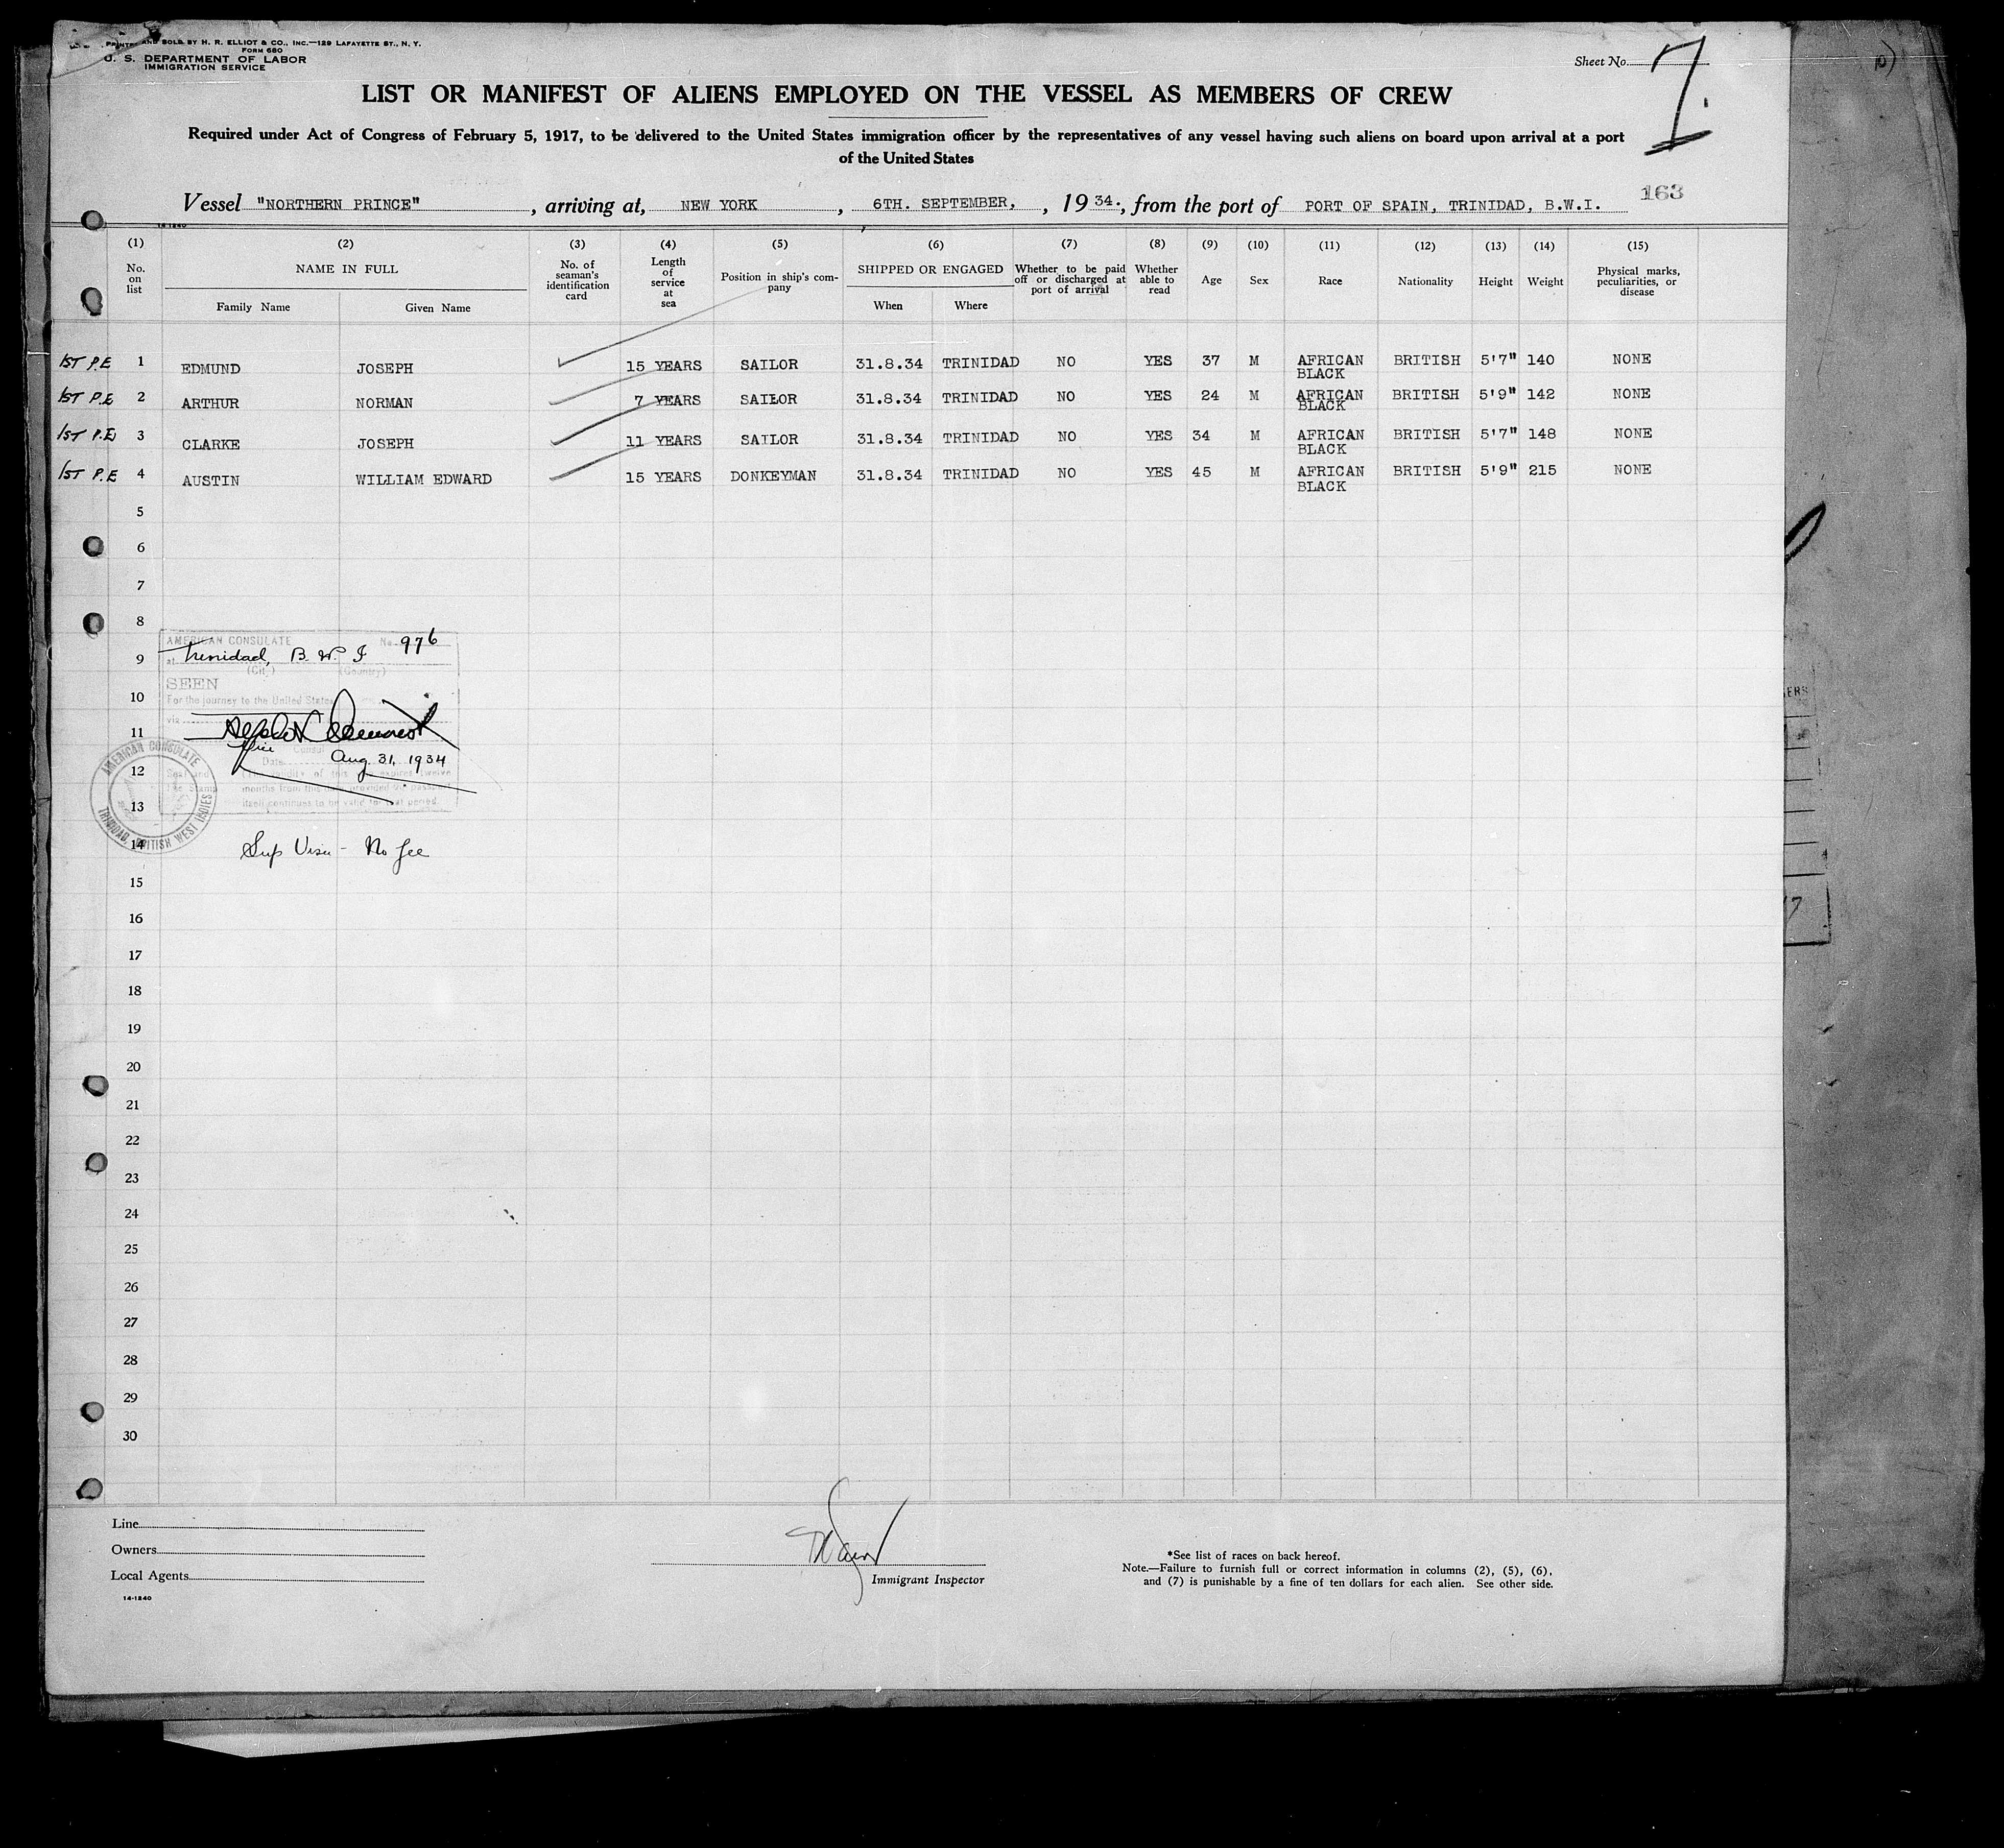 PRINTED AND SOLD BY H. R. ELLIOT & CO., INC.—129 LAFAYETTE ST., N. Y.
FORM 680
U. S. DEPARTMENT OF LABOR
IMMIGRATION SERVICE
Sheet No. 7.
LIST OR MANIFEST OF ALIENS EMPLOYED ON THE VESSEL AS MEMBERS OF CREW
Required under Act of Congress of February 5, 1917, to be delivered to the United States immigration officer by the representatives of any vessel having such aliens on board upon arrival at a port
of the United States
163
Vessel "NORTHERN PRINCE", arriving at, NEW YORK, 6TH. SEPTEMBER, , 19 34., from the port of PORT OF SPAIN, TRINIDAD, B.W.I.
14-1240
(1) (2) (3) (4) (5) (6) (7) (8) (9) (10) (11) (12) (13) (14) (15)
No. on list NAME IN FULL Family Name Given Name No. of seaman's identification card Length of service at sea Position in ship's company SHIPPED OR ENGAGED When Where Whether to be paid off or discharged at port of arrival Whether able to read Age Sex Race Nationality Height Weight Physical marks, peculiarities, or disease
1ST P.E 1 EDMUND JOSEPH 15 YEARS SAILOR 31.8.34 TRINIDAD NO YES 37 M AFRICAN BLACK BRITISH 5'7" 140 NONE
1ST P.E 2 ARTHUR NORMAN 7 YEARS SAILOR 31.8.34 TRINIDAD NO YES 24 M AFRICAN BLACK BRITISH 5'9" 142 NONE
1ST P.E 3 CLARKE JOSEPH 11 YEARS SAILOR 31.8.34 TRINIDAD NO YES 34 M AFRICAN BLACK BRITISH 5'7" 148 NONE
1ST P.E 4 AUSTIN WILLIAM EDWARD 15 YEARS DONKEYMAN 31.8.34 TRINIDAD NO YES 45 M AFRICAN BLACK BRITISH 5'9" 215 NONE
5
6
7
8
AMERICAN CONSULATE No. 976
9
at Trinidad, B. W. I
(City) (Country)
SEEN
10
For the journey to the United States
via
11
Vice Consul
Date Aug. 31, 1934
12
months from this date provided the passport
13
itself continues to be valid for that period.
AMERICAN CONSULATE
TRINIDAD, BRITISH WEST INDIES
14
Sup Visa - No fee
15
16
17
18
19
20
21
22
23
24
25
26
27
28
29
30
Line
Owners
Local Agents
14-1240
Immigrant Inspector
*See list of races on back hereof.
Note.—Failure to furnish full or correct information in columns (2), (5), (6),
and (7) is punishable by a fine of ten dollars for each alien. See other side.